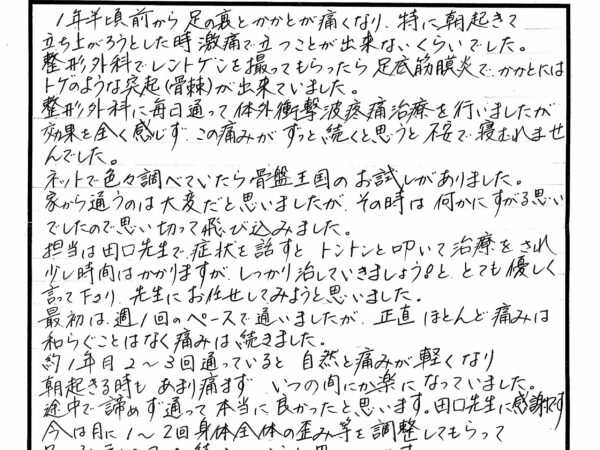 1年半頃前から足の裏とかかとが痛くなり、特に朝起きて
立ち上がろうとした時激痛で立つことが出来ないくらいでした。
整形外科でレントゲンを撮ってもらったら足底筋膜炎でかかとには
トゲのような突起(骨棘)が出来ていました。
整形外科に毎日通って体外衝撃波疼痛治療を行いましたが
効果を全く感じず、この痛みがずっと続くと思うと不安で寝むれませ
んでした。
ネットで色々調べていたら骨盤王国のお試しがありました。
家から通うのは大変だと思いましたが、その時は何かにすがる思い
でしたので思い切って飛び込みました。
担当は田口先生で、症状を話すとトントンと叩いて治療をされ
少し時間はかかりますが、しっかり治していきましょう!と、とても優しく
言って下さり、先生にお任せしてみようと思いました。
最初は、週1回のペースで通いましたが、正直ほとんど痛みは
和らぐことはなく痛みは続きました。
約1年目2〜3回通っていると自然と痛みが軽くなり
朝起きる時もあまり痛まず、いつの間にか楽になっていました。
途中で諦めず通って本当に良かったと思います。田口先生に感謝です
今は月に1〜2回身体全体の歪み等を調整してもらって